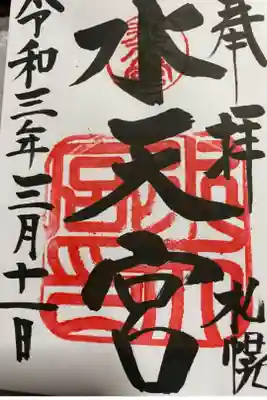 奉拝
札幌
水天宮
令和三年三月十一日